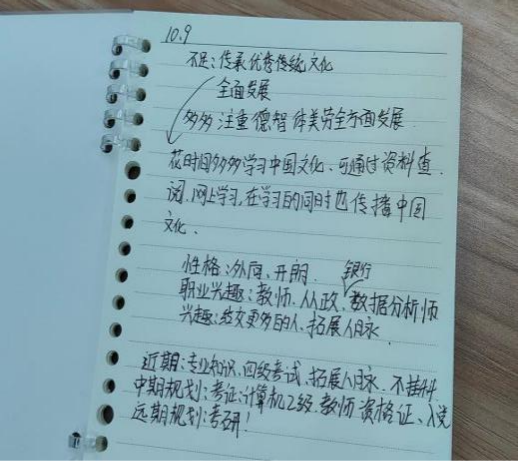 10.9
不足:传承优秀传统文化
全面发展
多多注重德智体美劳全方面发展
花时间多多学习中国文化、可通过资料查
阅、网上学习,在学习的同时也传播中国
文化、
性格:外向、开朗、 银行
职业兴趣:教师、从政、数据分析师
兴趣:结交更多的人、拓展人脉
近期:专业知识、四级考试、拓展人脉、不挂科
中期规划:考证:计算机2级、教师资格证、入党
远期规划:考研!